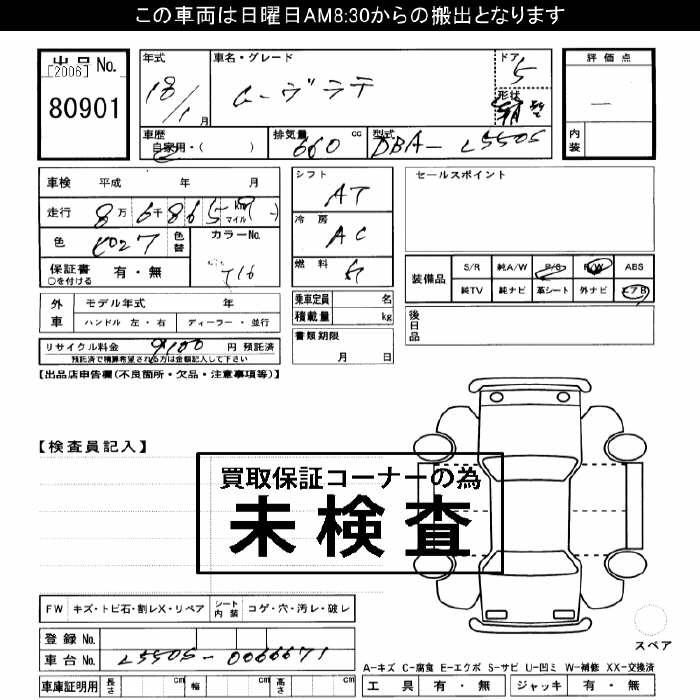 この車両は日曜日AM8:30からの搬出となります
出品 No.
[2006]
80901
年式
18/1 月
車名・グレード
ムーヴラテ
ドア
5
形状
車歴
自家用・( )
排気量
660 cc
型式
DBA- L550S
評価点
内装
車検 平成 年 月
走行 8万 6千 865 km マイル
色
色替
カラーNo.
T16
保証書 ○を付ける
有・無
外車
モデル年式 年
ハンドル 左・右
ディーラー・並行
リサイクル料金 円 預託済
預託済で精算希望される方は金額記入して下さい
シフト
AT
冷房
AC
燃料
乗車定員 名
積載量 kg
書類期限
月 日
セールスポイント
装備品
S/R 純A/W P/S P/W ABS
純TV 純ナビ 革シート 外ナビ エアB
後日品
【出品店申告欄(不良箇所・欠品・注意事項等)】
【検査員記入】
買取保証コーナーの為
未検査
FW キズ・トビ石・割レX・リペア
シート内装 コゲ・穴・汚レ・破レ
登録 No.
車台 No. L550S-0066671
車庫証明用 長さ cm 幅 cm 高さ cm
スペア
A-キズ C-腐食 E-エクボ S-サビ U-凹ミ W-補修 XX-交換済
工具 有・無 ジャッキ 有・無